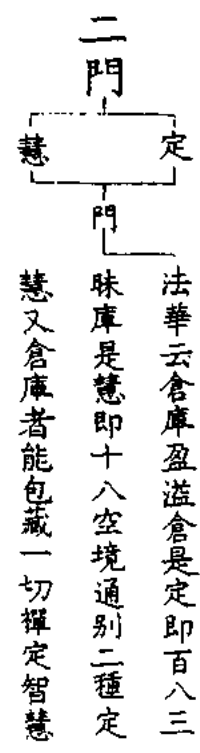 二門
定
慧
門
法華云倉庫盈溢倉是定即百八三
昧庫是慧即十八空境通别二種定
慧又倉庫者能包藏一切禪定智慧